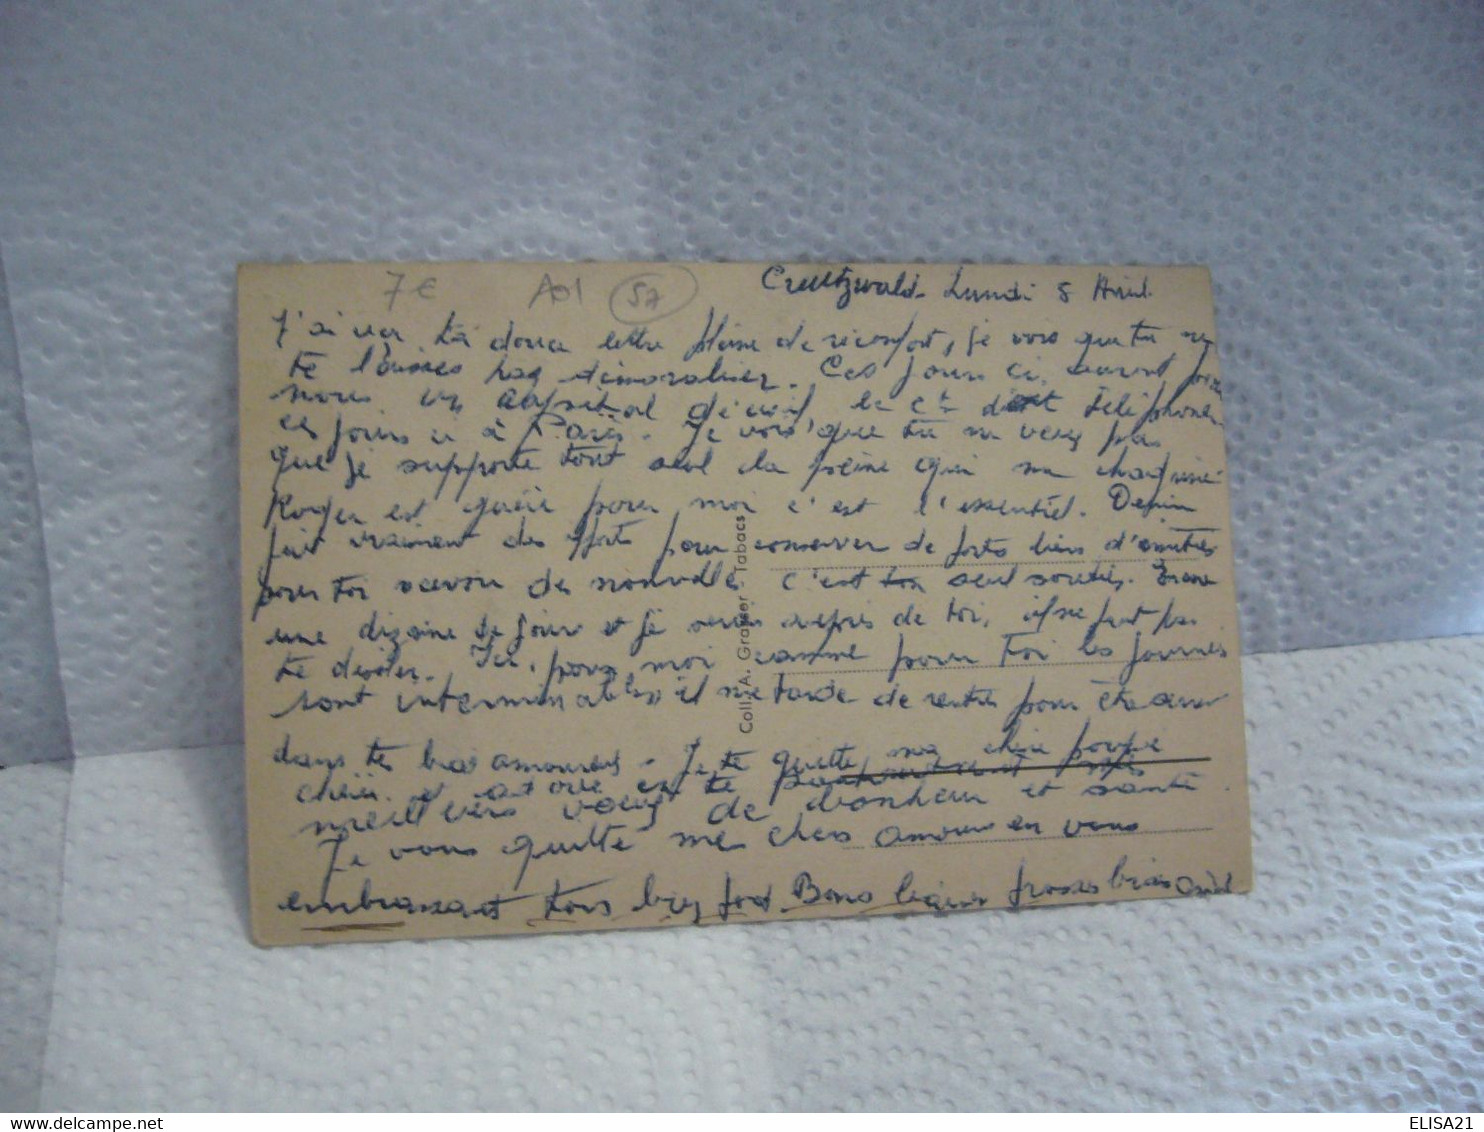 7€ A01 57
Creutzwald. Lundi 8 Avril
J'ai reçu ta douce lettre pleine de réconfort, je vois que tu ne
te laisses pas démoraliser. Ces jours ci, auront pour
nous un décisif, le doit téléphoner
ces jours ci à Paris. Je vois que tu ne veux pas
que je supporte tout seul la peine qui me
Roger est guéri pour moi c'est l'essentiel. Denin
fait vraiment des efforts pour conserver de forts liens d'amitiés
pour toi savoir de nouvelles c'est ton seul soucis. Encore
une dizaine de jours et je serai auprès de toi, il ne faut pas
te désoler. Ici, pour moi comme pour toi les journes
sont interminables, il me tarde de rentrer pour être
dans tes bras amoureux. Je te quitte ma chère poupée
chérie, et te mes
meilleurs voeux de bonheur et santé
Je vous quitte mes chers amours en vous
embrassant tous bien fort Bons baisers grosses bises
Coll. A. Grasser - Tabacs
ELISA21